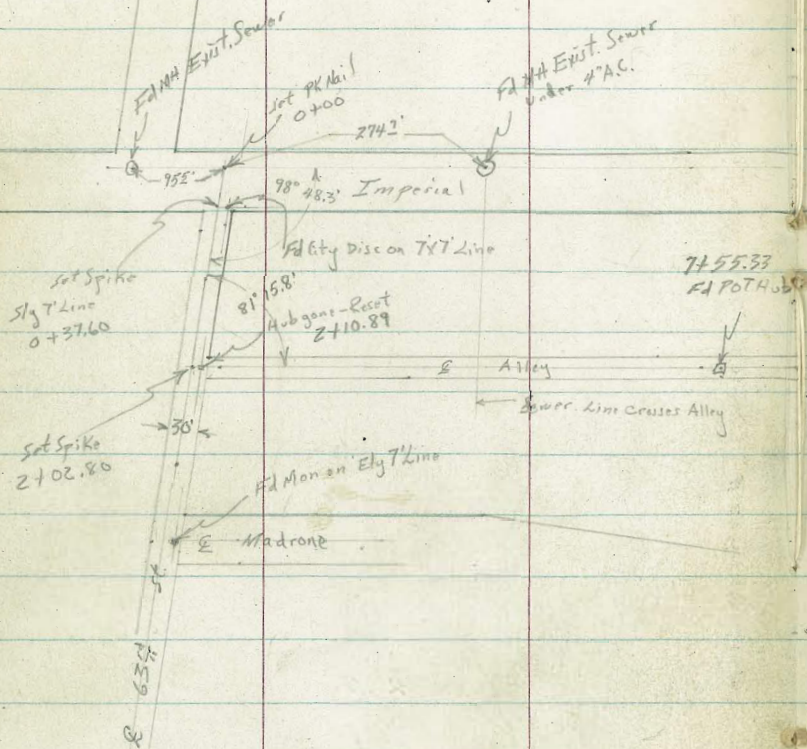 Fd MH Exist. Sewer
Set PK Nail
0+00
Fd MH Exist. Sewer
under 4" A.C.
274
95
98° 48.3'
Imperial
Fd City Disc on 7'x7' Line
Set Spike
Sly 7' Line
0+37.60
81° 15.8'
Hub gone - Reset
2+10.89
7+55.33
Fd POT Hub
℄ Alley
Sewer Line Crosses Alley
30'
Set Spike
2+02.80
Fd Mon on Ely 7' Line
℄ Madrone
63rd St
℄